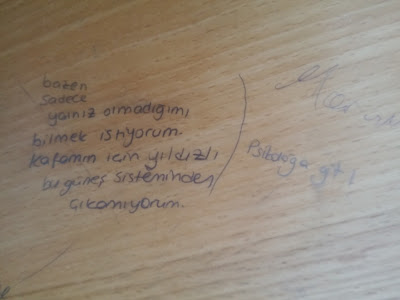 bazen
sadece
yalnız olmadığımı
bilmek istiyorum.
kafamın için yıldızlı
bu güneş sisteminden
çıkamıyorum.
Psikoloğa git!